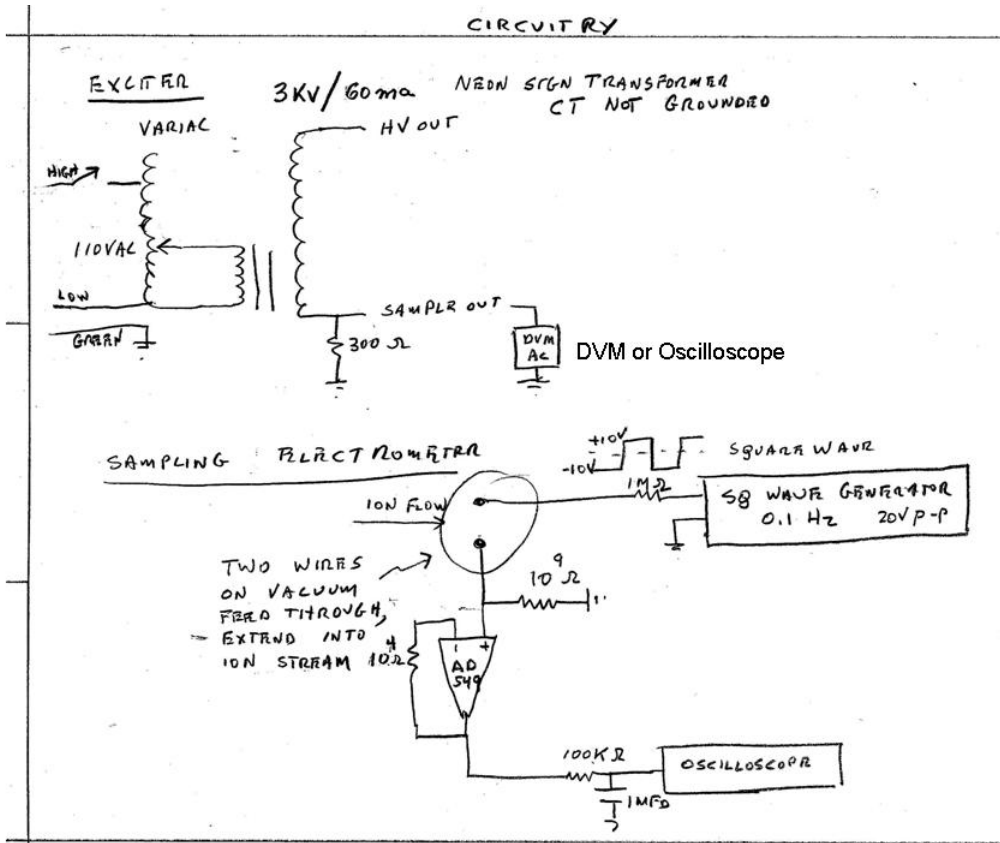 CIRCUITRY
EXCITER
3KV/60ma NEON SIGN TRANSFORMER
CT NOT GROUNDED
VARIAC
HV OUT
HIGH
110VAC
LOW
GREEN
SAMPLE OUT
300 Ω
DVM
AC
DVM or Oscilloscope
SAMPLING ELECTROMETER
+10V
-10V
SQUARE WAVE
1MΩ
SQ WAVE GENERATOR
0.1 Hz 20V P-P
ION FLOW
TWO WIRES
ON VACUUM
FEED THROUGH,
EXTEND INTO
ION STREAM
10⁹Ω
10⁴Ω
- +
AD
549
100KΩ
OSCILLOSCOPE
1MFD